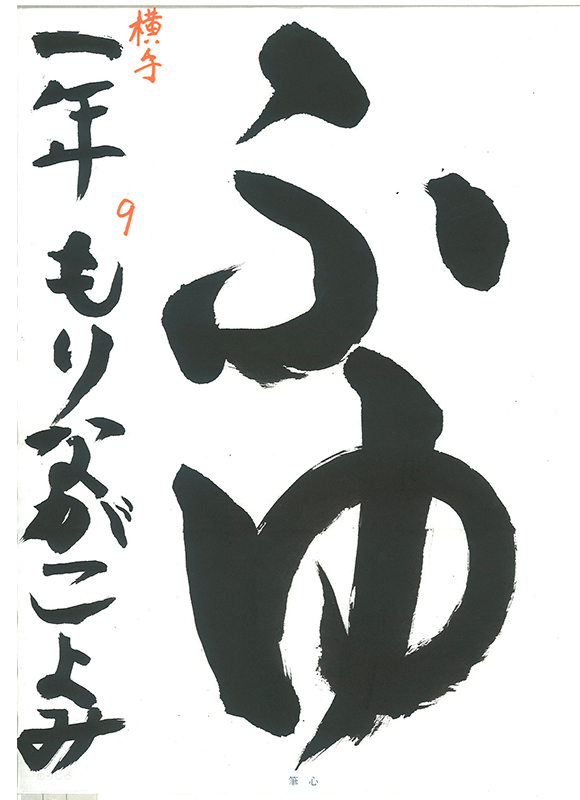 ふゆ
横手
9
一年 もりながこよみ
筆心